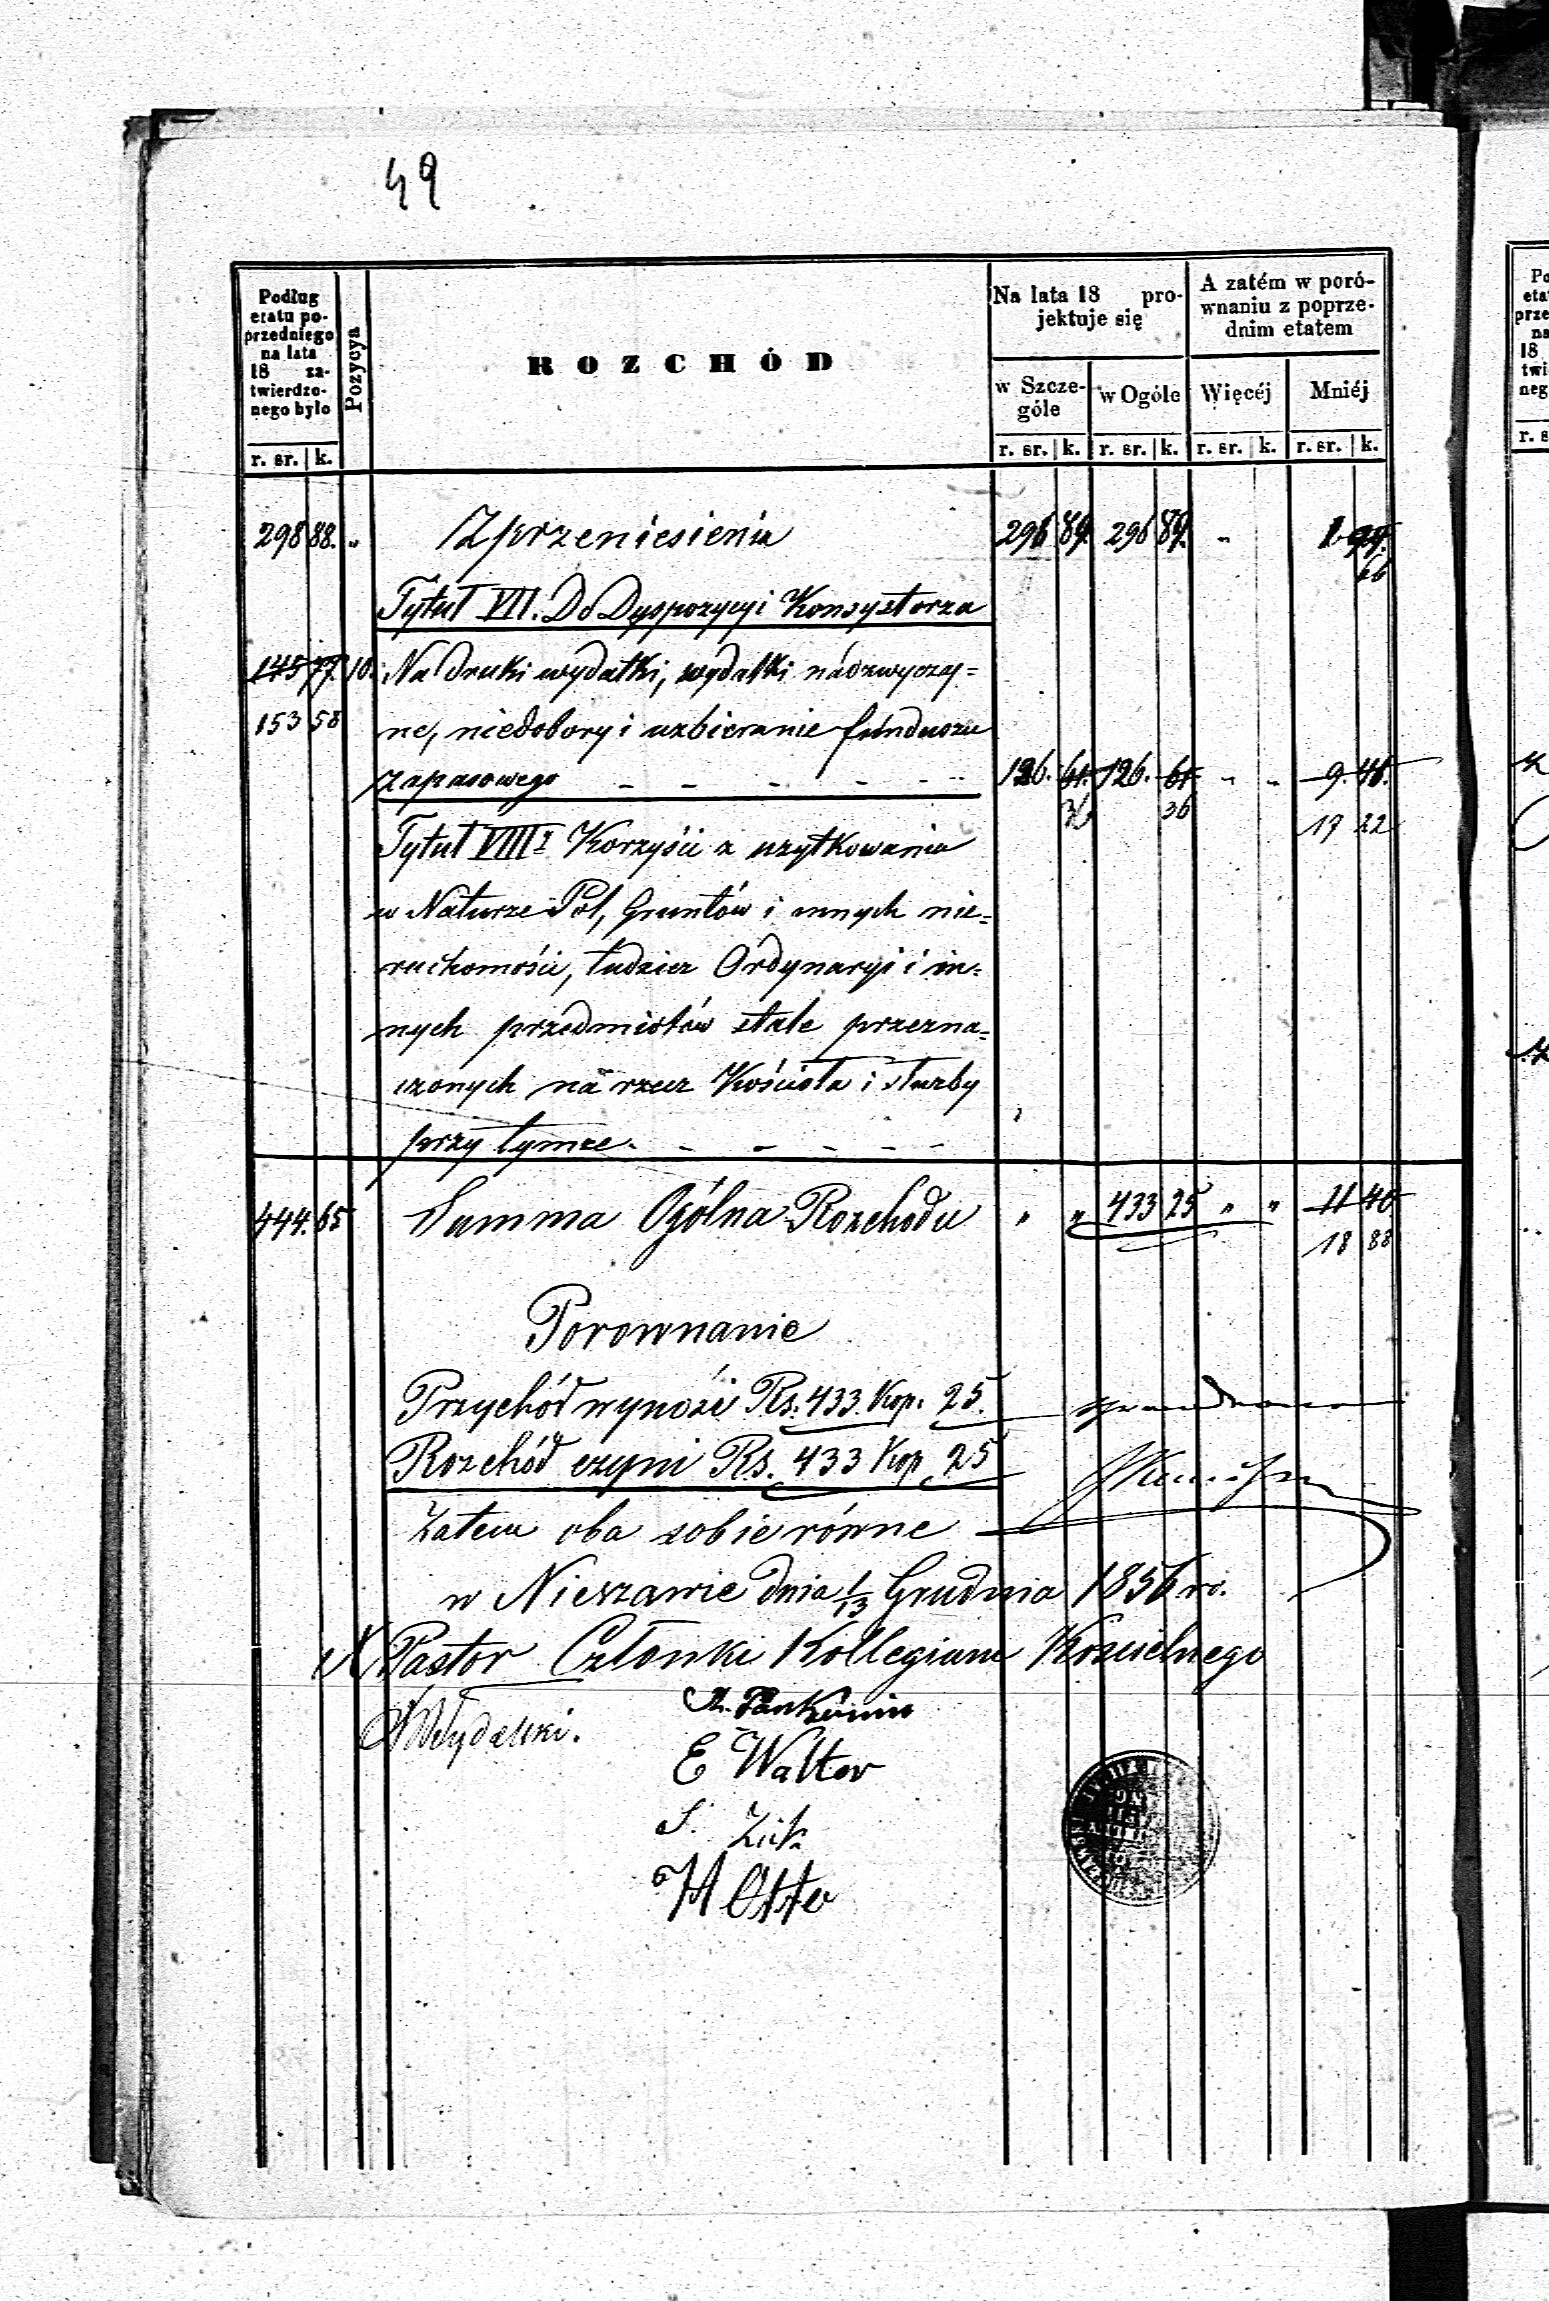 49
Podług etatu poprzedniego na lata 18 zatwierdzonego było
Pozycya
ROZCHÓD
Na lata 18 projektuje się
A zatém w porównaniu z poprzednim etatem
w Szczególe
w Ogóle
Więcéj
Mniéj
r. sr. k. r. sr. k. r. sr. k. r. sr. k. r. sr. k.
298 88. " Z przeniesienia 296 89. 296 89. "
66
Tytuł VII. Do Dyspozycyi Konsystorza
145 77. 10. Na druki wydatki, wydatki nádzwyczaj=
153 58 ne, niedobory i uzbieranie funduszu
zapasowego - - - - - 126. 61. 126. 61. " " 9. 46.
36 36 19 22
Tytuł VIII Korzyści z użytkowania
w Naturze Pól, Gruntów i innych nie=
ruchomości, tudzież Ordynaryi i in=
nych przedmiotów stale przezna=
czonych na rzecz Kościoła i służby
przy tymże. - - - - -
444. 65 Summa Ogólna Rozchodu " " 433 25 " " 11 40
18 88
Porownanie
Przychód wynosi Rs. 433. Kop. 25.
sprawdzono
Rozchód czyni Rs. 433 Kop 25
Zatem oba sobie równe
w Nieszawie dnia 1/13 Grudnia 1856 ro.
Pastor Członki Kollegium Kościelnego
E Walter
S. Zük
H Otto